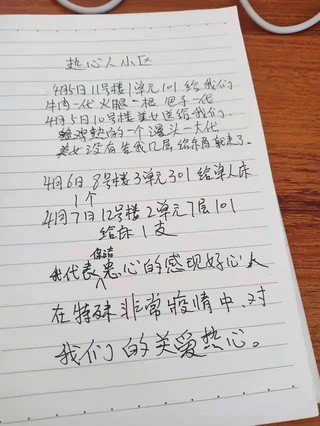 热心人小区
4月5日11号楼1单元101给我们
牛肉一代火腿一根 包子一代
4月5日10号楼美女送给我们
一个馒头一大代
美女没有告我几层 给东西就走了.
4月6日8号楼3单元301给单人床
1个
4月7日12号楼2单元7层101
给床1支
我代表保洁忠心的感现好心人
在特殊非常疫情中、对
我们的关爱热心。